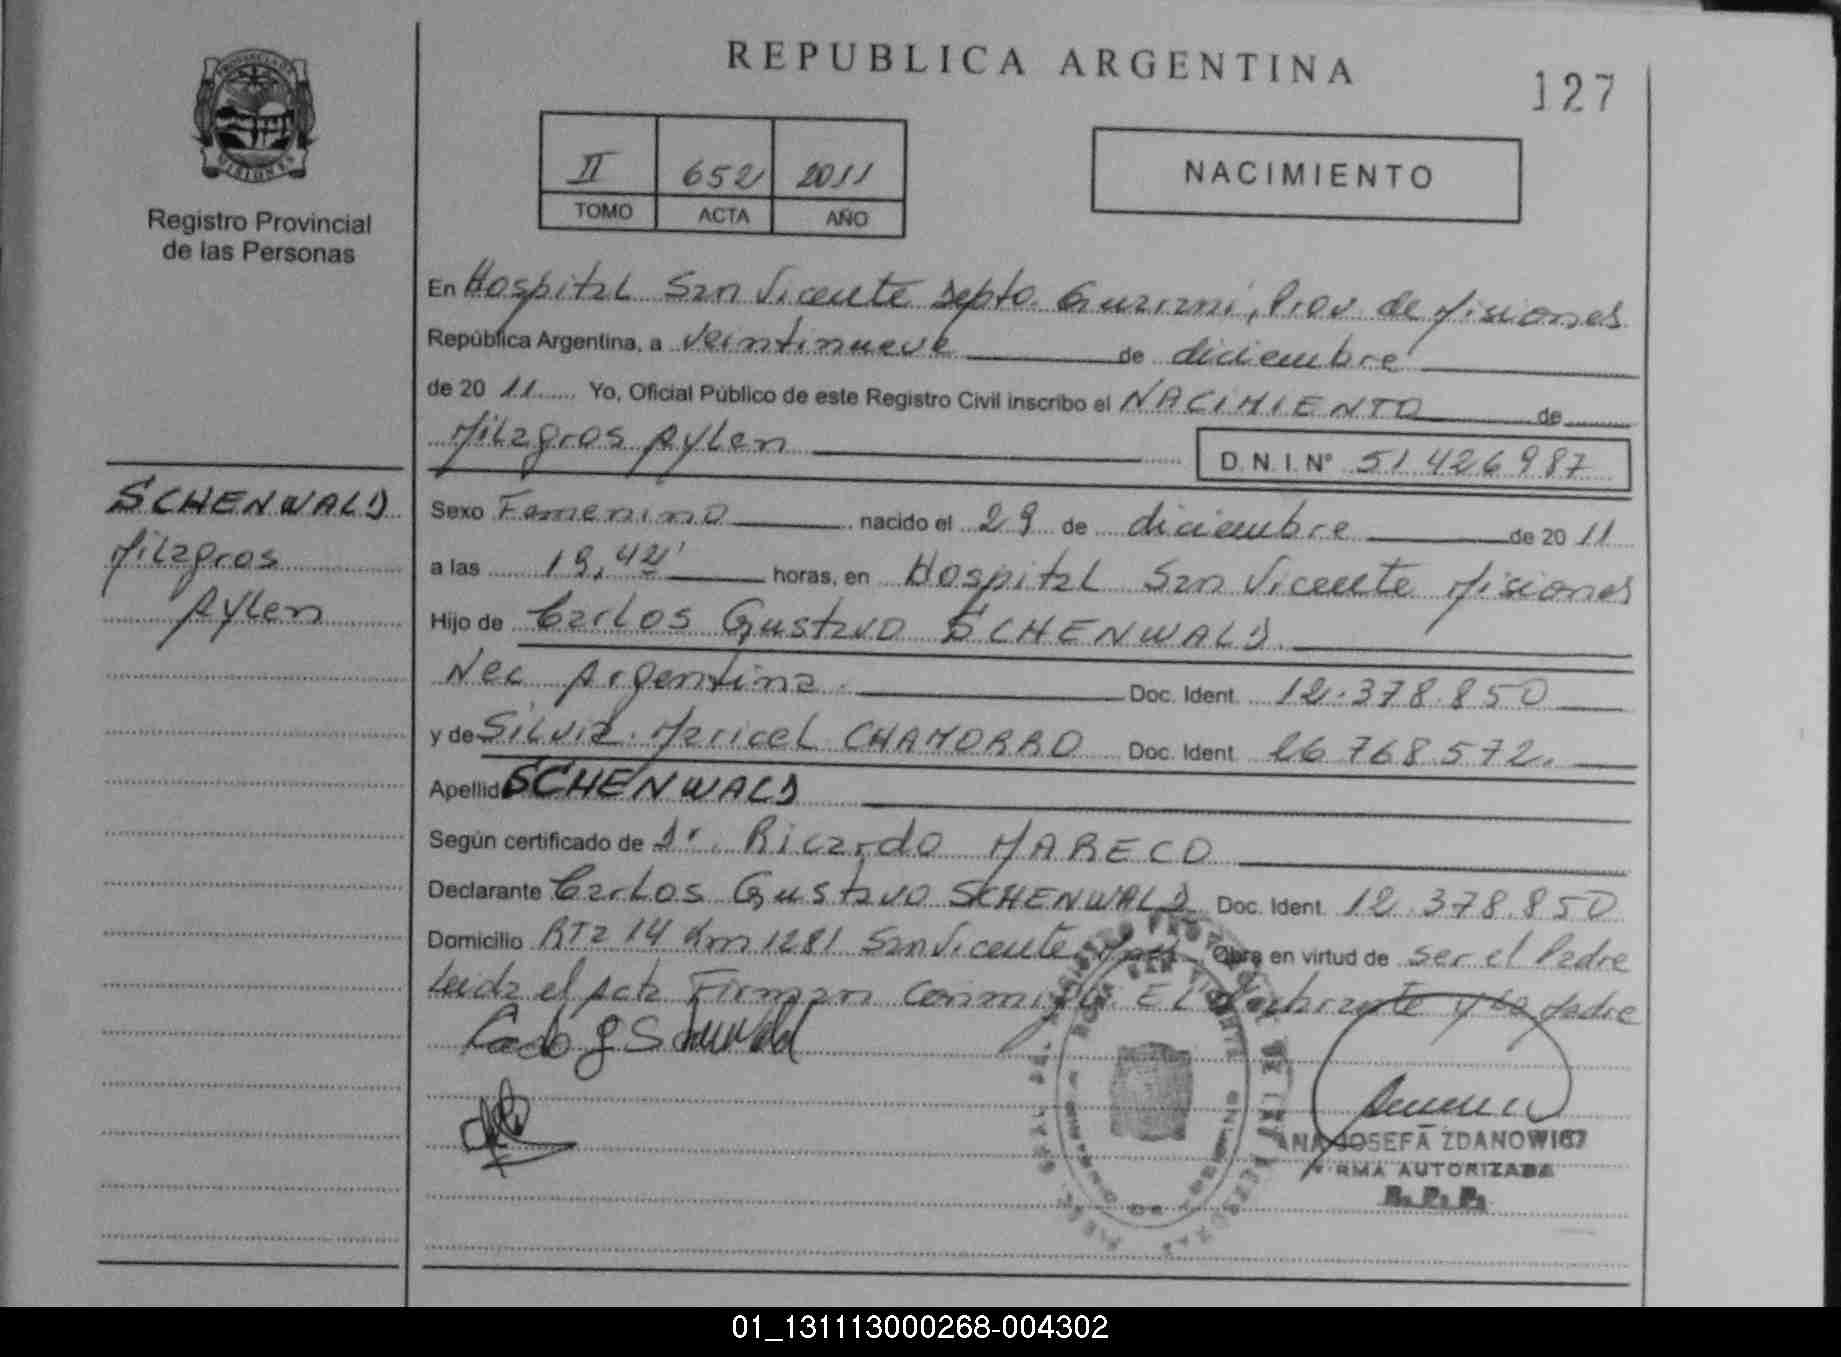 REPUBLICA ARGENTINA
127
PROVINCIA DE
MISIONES
Registro Provincial
de las Personas
II 652 2011
TOMO ACTA AÑO
NACIMIENTO
En Hospital San Vicente Depto. Guarani, Prov. de Misiones
República Argentina, a veintinueve de diciembre
de 20 11 Yo, Oficial Público de este Registro Civil inscribo el NACIMIENTO de
Milagros Aylen D. N. I. N° 51 426 987
SCHENWALD
Milagros
Aylen
Sexo Femenino nacido el 29 de diciembre de 20 11
a las 19,42' horas, en Hospital San Vicente Misiones
Hijo de Carlos Gustavo SCHENWALD
Nac Argentina. Doc. Ident. 12.378.850
y de Silvia Maricel CHAMORRO Doc. Ident. 26 768.572.
Apellido SCHENWALD
Según certificado de Dr. Ricardo MARECO
Declarante Carlos Gustavo SCHENWALD Doc. Ident. 12.378.850
Domicilio RTa 14 Km 1281 San Vicente, Obra en virtud de ser el Padre
Leida el Acta Firman Conmigo. El declarante y la Madre
ANA JOSEFA ZDANOWICZ
FIRMA AUTORIZADA
R. P. P.
01_131113000268-004302